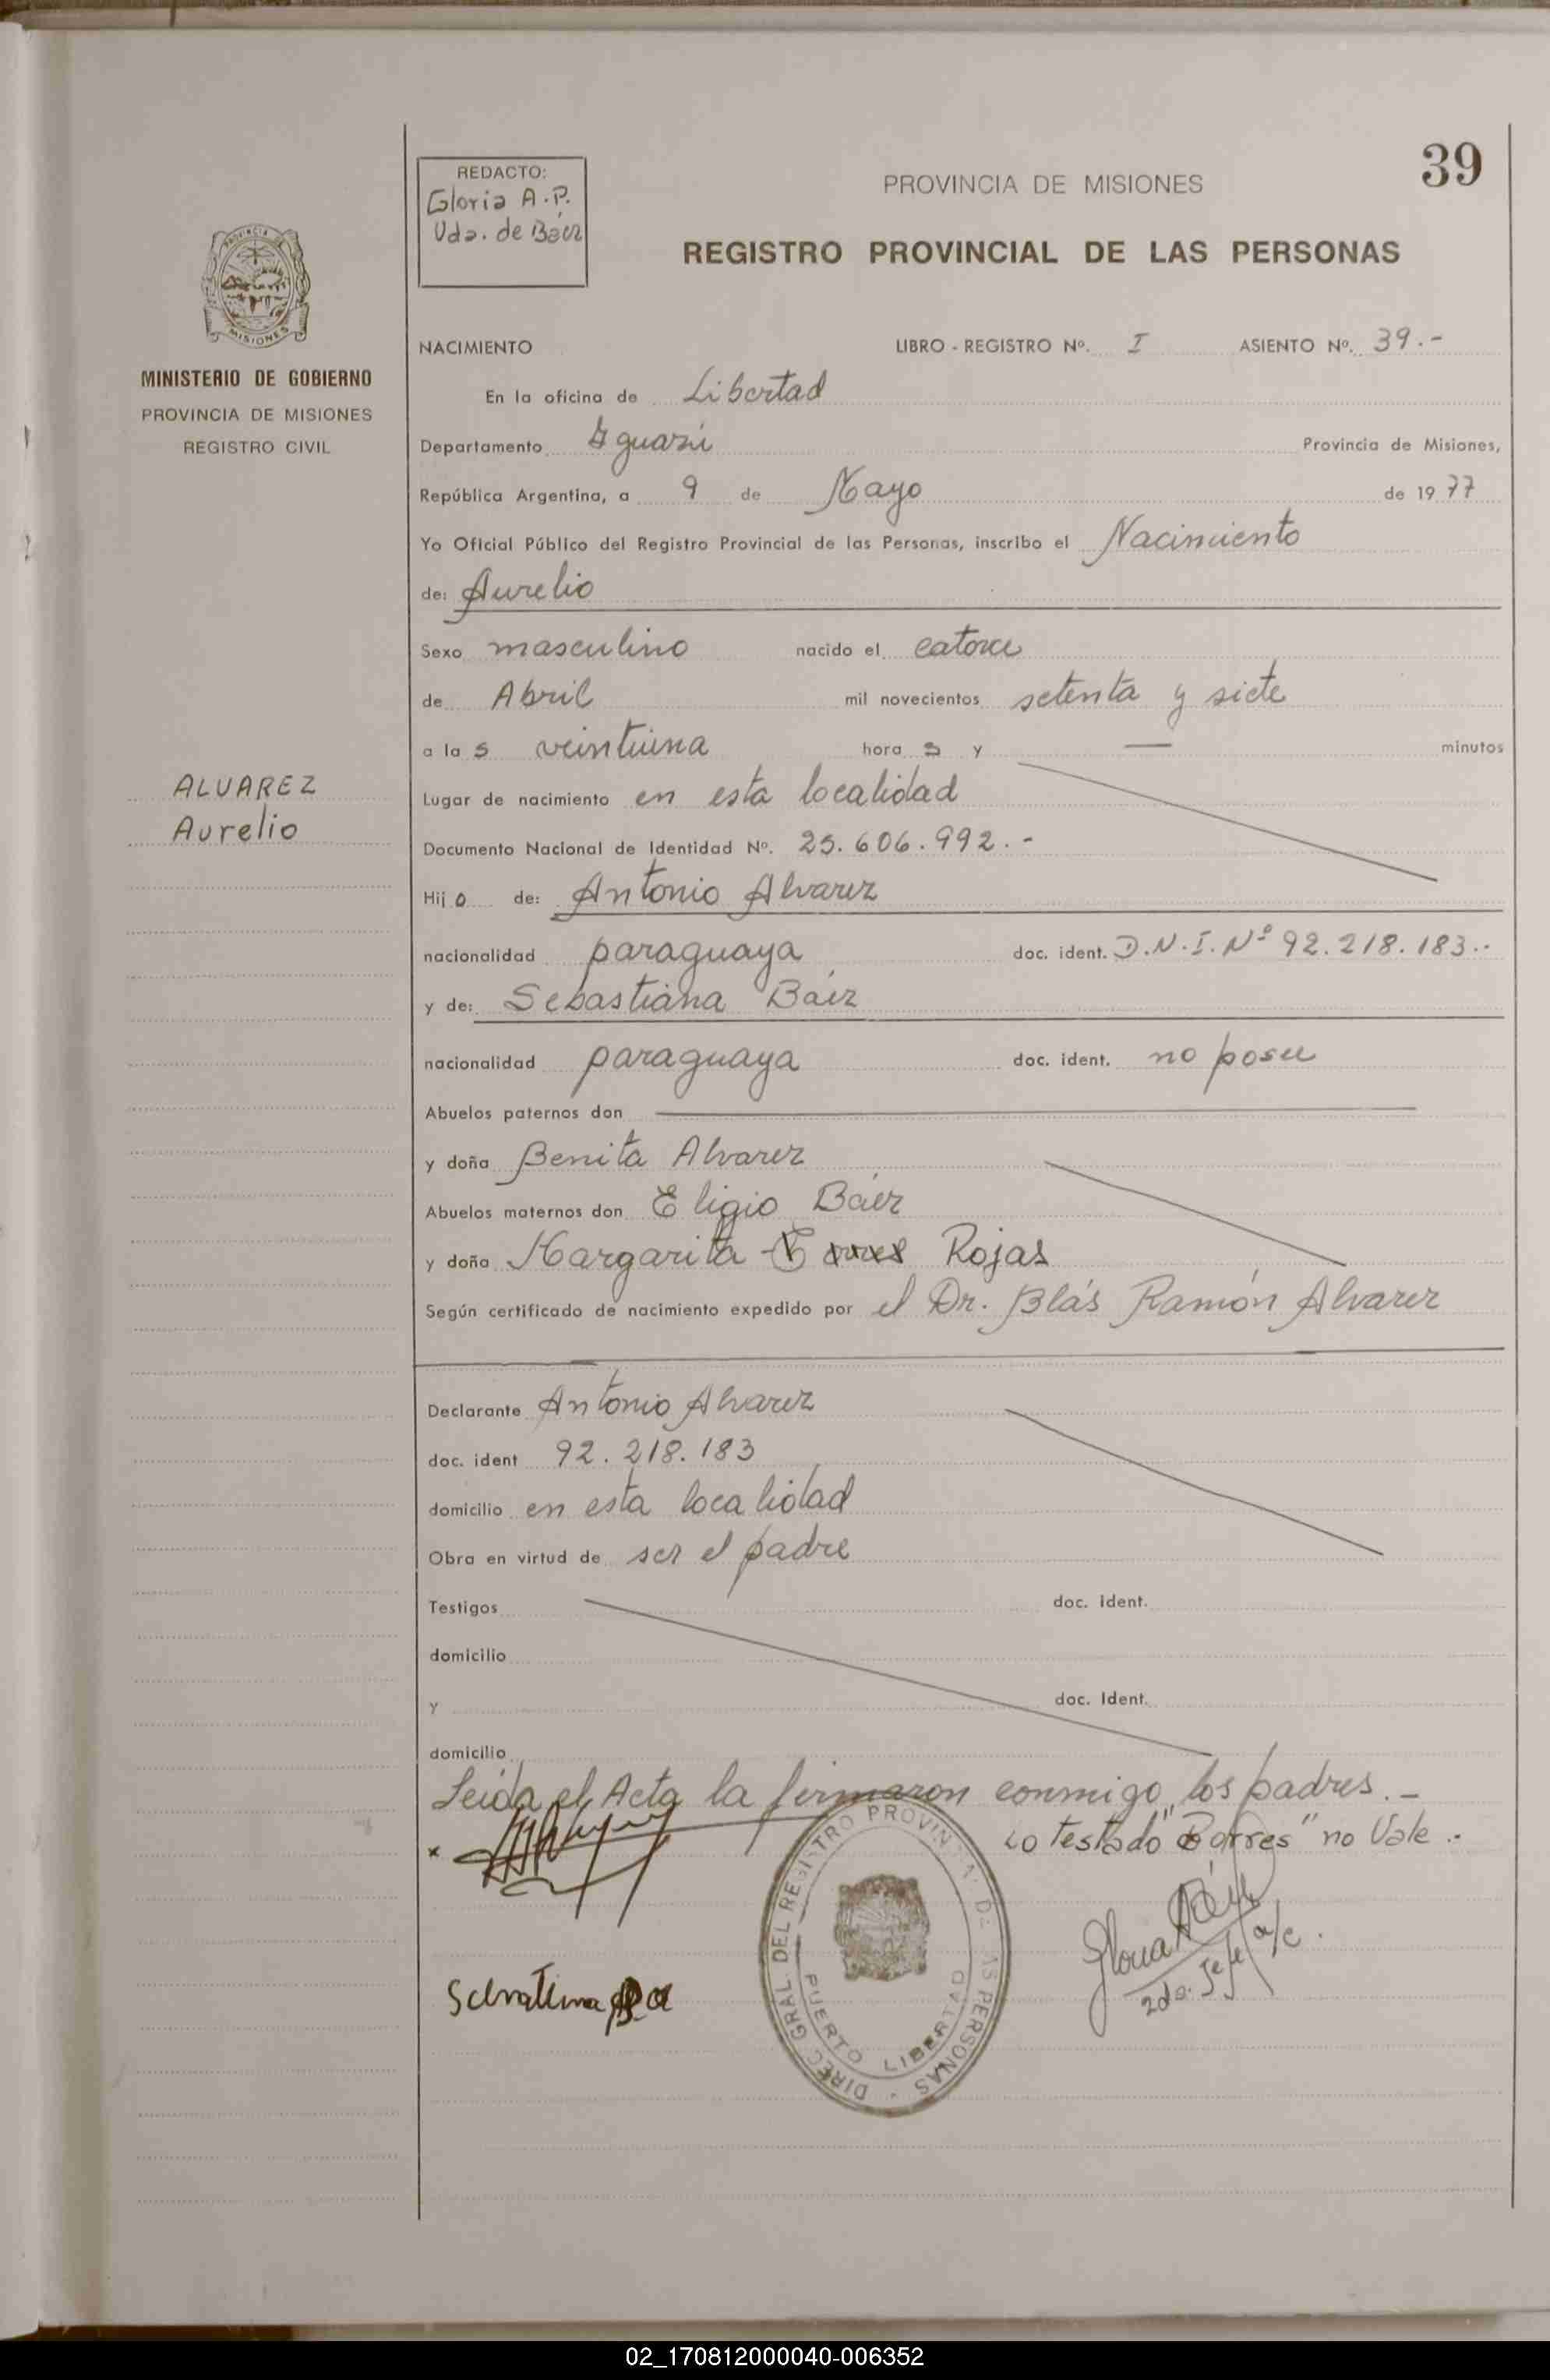 39
REDACTO:
Gloria A.P.
Vda. de Báez
PROVINCIA DE MISIONES
REGISTRO PROVINCIAL DE LAS PERSONAS
PROVINCIA DE
MISIONES
MINISTERIO DE GOBIERNO
PROVINCIA DE MISIONES
REGISTRO CIVIL
ALVAREZ
Aurelio
NACIMIENTO LIBRO - REGISTRO Nº. I ASIENTO Nº. 39.-
En la oficina de Libertad
Departamento Iguazú Provincia de Misiones,
República Argentina, a 9 de Mayo de 1977
Yo Oficial Público del Registro Provincial de las Personas, inscribo el Nacimiento
de: Aurelio
Sexo masculino nacido el catorce
de Abril mil novecientos setenta y siete
a la s veintiuna hora s y — minutos
Lugar de nacimiento en esta localidad
Documento Nacional de Identidad Nº. 25.606.992.-
Hij o de: Antonio Alvarez
nacionalidad paraguaya doc. ident. D.N.I. Nº 92.218.183.-
y de: Sebastiana Báez
nacionalidad paraguaya doc. ident. no posee
Abuelos paternos don
y doña Benita Alvarez
Abuelos maternos don Eligio Báez
y doña Margarita Rojas
Según certificado de nacimiento expedido por el Dr. Blás Ramón Alvarez
Declarante Antonio Alvarez
doc. ident 92.218.183
domicilio en esta localidad
Obra en virtud de ser el padre
Testigos doc. ident.
domicilio
y doc. Ident.
domicilio
Leída el Acta la firmaron conmigo los padres.-
Lo testado "Torres" no Vale.-
DIREC. GRAL. DEL REGISTRO PROVINCIAL DE LAS PERSONAS
PUERTO LIBERTAD
2do. Jefe a/c.
02_170812000040-006352